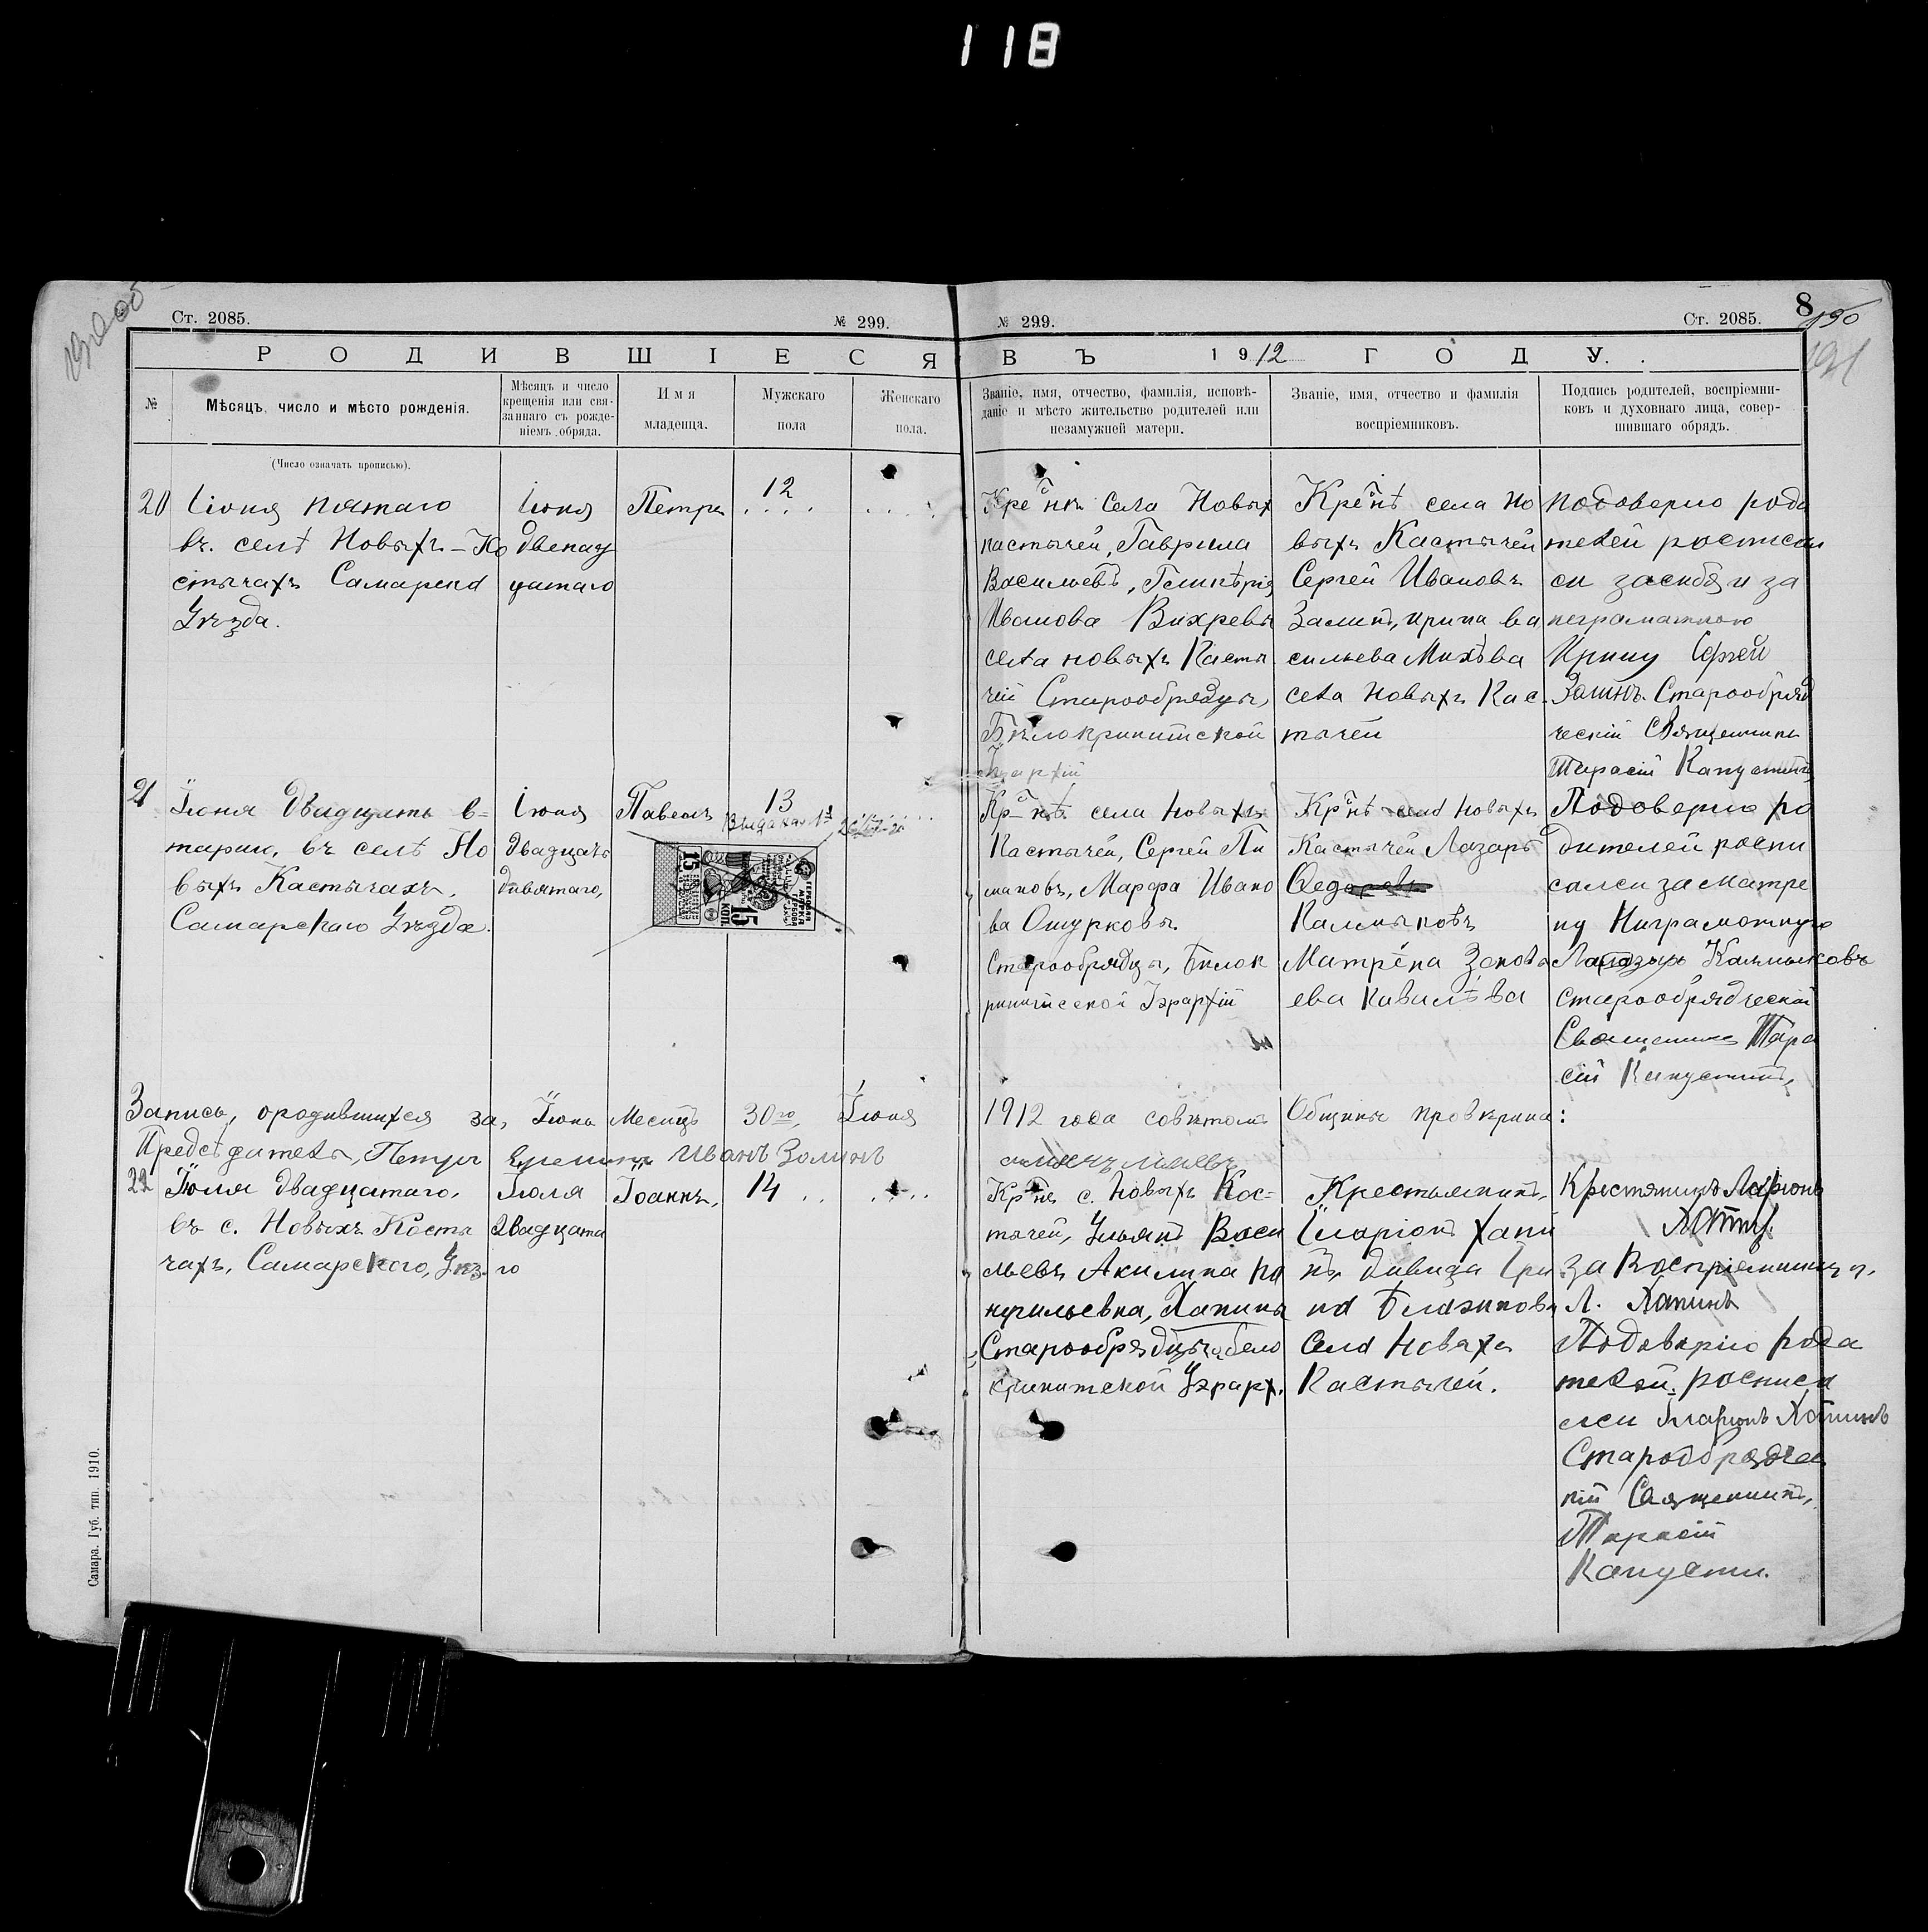 118
Ст. 2085.
№ 299.
№ 299.
Ст. 2085.
8
190
191
РОДИВШІЕСЯ
ВЪ 1912 ГОДУ.
№
Мѣсяцъ, число и мѣсто рожденія.
Мѣсяцъ и число
крещенія или свя-
заннаго съ рожде-
ніемъ обряда.
Имя
младенца.
Мужскаго
пола
Женскаго
пола.
Званіе, имя, отчество, фамилія, исповѣ-
даніе и мѣсто жительство родителей или
незамужней матери.
Званіе, имя, отчество и фамилія
воспріемниковъ.
Подпись родителей, воспріемни-
ковъ и духовнаго лица, совер-
шившаго обрядъ.
(Число означать прописью).
20
Іюня пятаго
въ селѣ Новыхъ-Ко
стычахъ Самарска
Уѣзда.
Іюня
двенац
цатаго
Петръ
12
Села Новых
Кастычей, Гаврила
Васильевъ,
Иванова Вихревы
села новыхъ Касты
чей Старообрядцы,
Бѣлокриницской
села Но
выхъ Кастычей
Сергей Ивановъ
Золинъ, Ирина Ва
сильева
села Новыхъ Кас-
тычей
Подоверію роди
телей росписал
си засибя и за
неграматною
Ирину Сергей
Золинъ. Старообряд
ческій Священникъ
Тарасій Капустинъ
21
Іюня двадцать в-
тарии, въ селѣ Но
выхъ Кастычахъ.
Самарскаго Уѣзда.
Іюня
двадцать
дивятаго,
Павелъ
13
15
КОП
15
села Новыхъ
Кастычей, Сергей Пи
мановъ, Марфа Ивано
ва Ошурковы.
Старообрядцы, Билок
риницской Іэрархіи
села Новыхъ
Кастычей Лазарь
Федоровъ
Калмыковъ
Матрёна
ева
Подоверію ро
дителей роспи
салси за Матре
нуНиграмотную
Калмыковъ
старообрядческій
Священникъ Тара
сій Капустинъ,
Запись, ородившихся за, Іюнь Месяцъ 30го, Іюня 1912 года совѣтомъ Общины провѣрина:
Председатель, Петръ Еремин Иванъ Золинъ
22
Іюля двадцатаго,
въ с. Новыхъ Косты
чахъ, Самарского, Уѣз.
Іюля
двадцата
го
Іоаннъ,
14
с. Новыхъ Кос-
тычей, Ульянъ Васи
льевъ Акилина По
нфильевна, Хапины
Старообрядцы, бело
криницской Іэрарх.
Крестьянинъ,
Иларіонъ Хапи
нъ,
села Новыхъ
Кастычей.
Крестянинъ Ларіонъ
за воспріемницу,
Л. Хапинъ
Подовѣрію роди
телей. росписа
лси Иларіонъ Хапинъ
Старообрядчес
кій Священникъ,
Тарасій
Капусти.
Самара. Губ. тип. 1910.